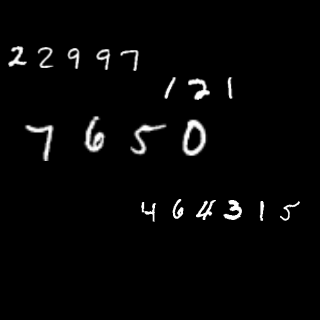 22997
121
7650
464315